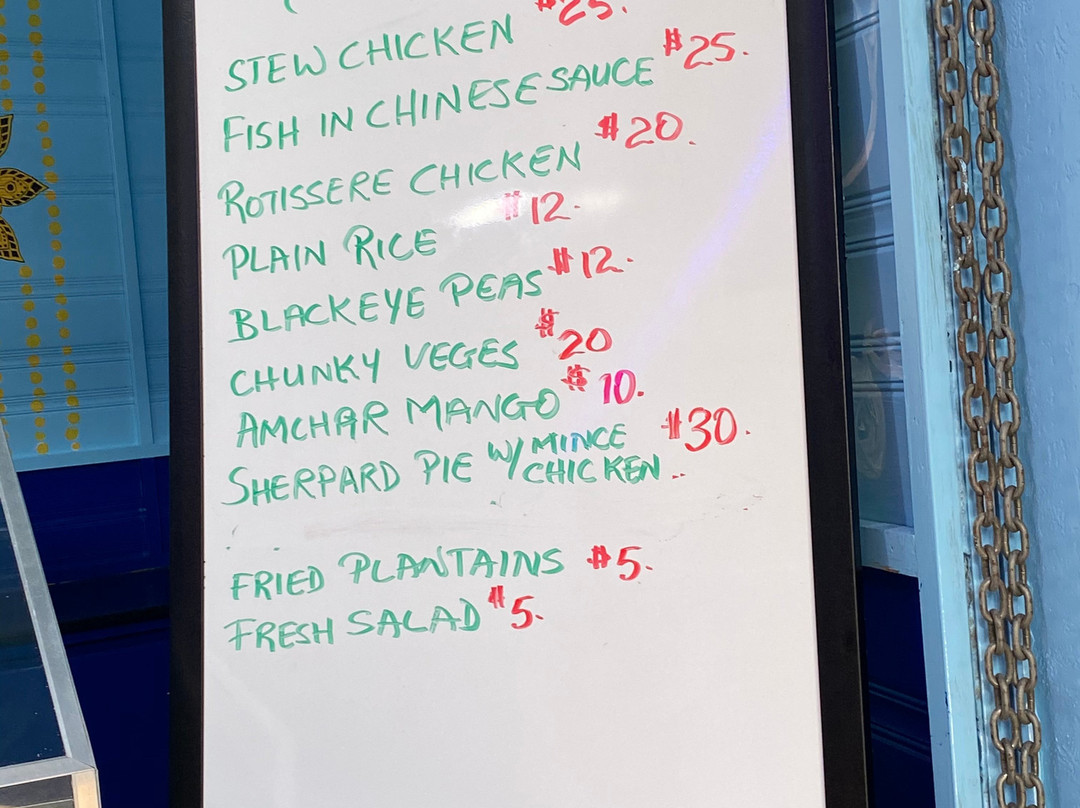 STEW CHICKEN $25.
FISH IN CHINESE SAUCE $25.
ROTISSERE CHICKEN $20.
PLAIN RICE $12.
BLACKEYE PEAS $12.
CHUNKY VEGES $20
AMCHAR MANGO $10.
SHERPARD PIE W/ MINCE $30.
CHICKEN..
FRIED PLANTAINS $5.
FRESH SALAD $5.